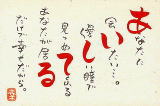 あなたに
会いたい…。
優しい瞳で
見つめてくれる
あなたが居る
だけで幸せだから。